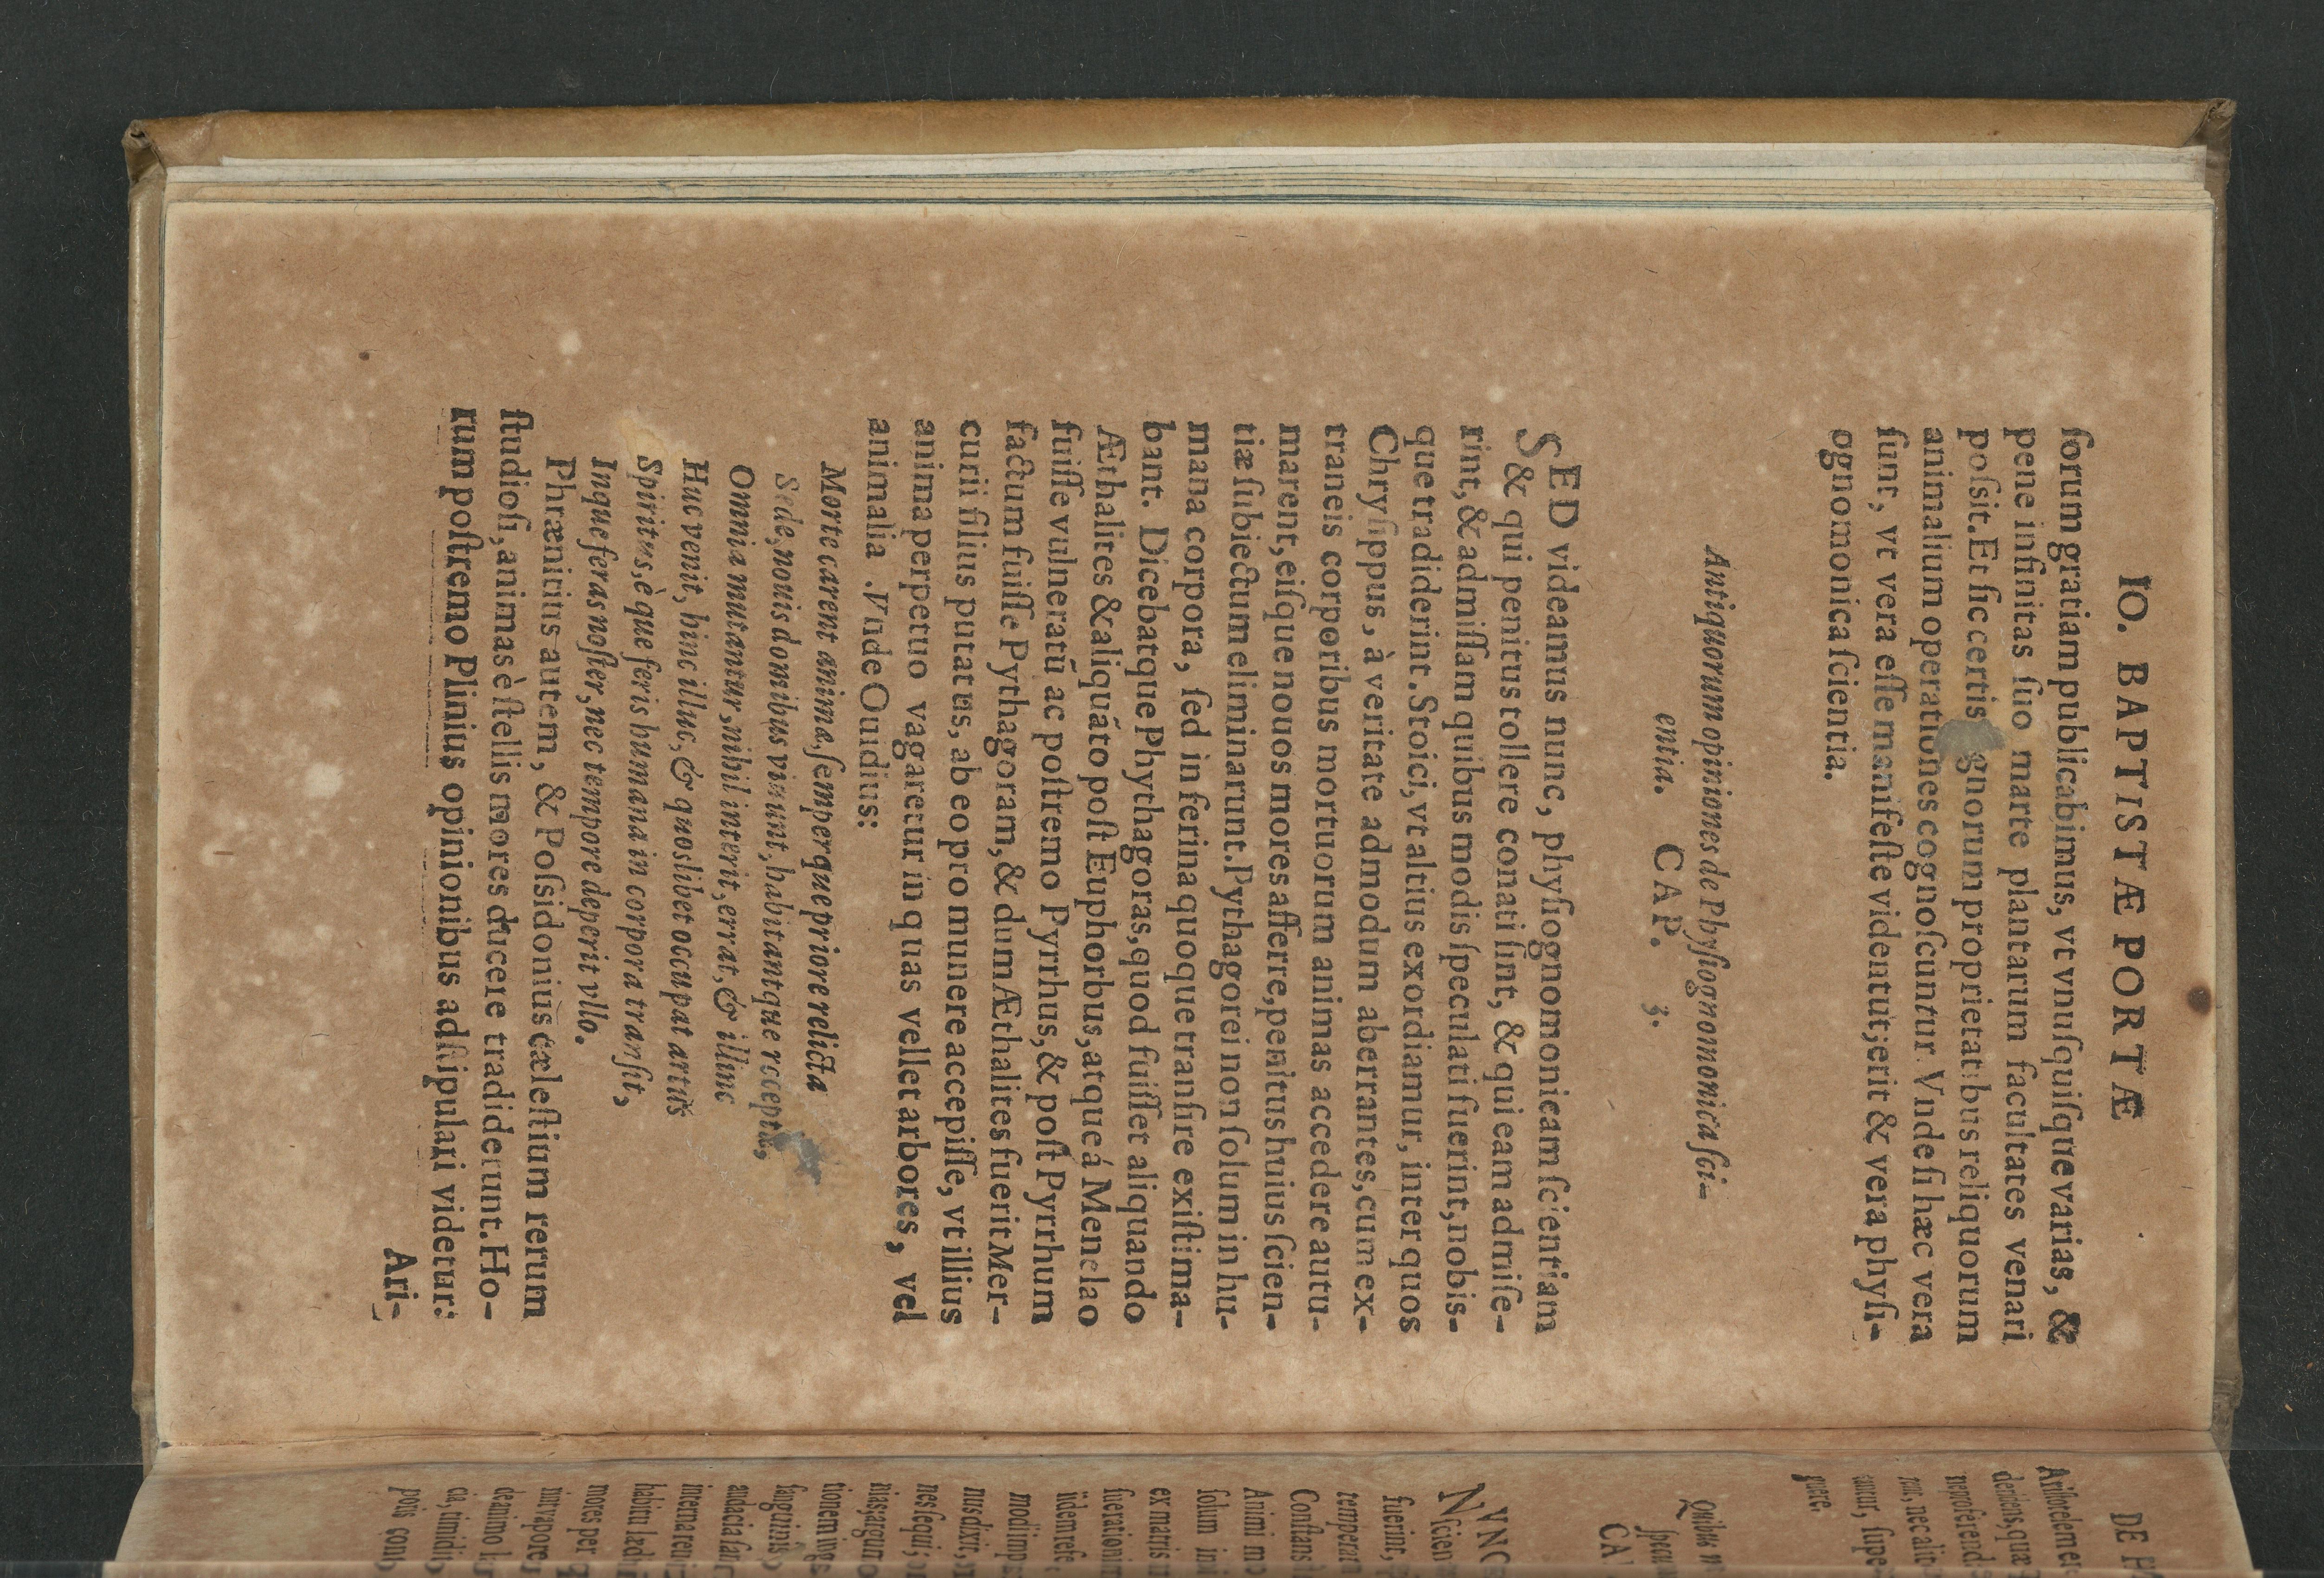 IO. BAPTISTÆ PORTÆ
ſorum gratiam publicabimus, vt vnuſquiſque varias, &
pene infinitas ſuo marte plantarum facultates venari
poſsit. Et ſic certis gnorum proprietatibus reliquorum
animalium operationes cognoſcuntur. Vnde ſi hæc vera
ſunt, vt vera eſſe manifeſte videntut; erit & vera phyſi-
ognomonica ſcientia.
Antiquorum opiniones de Phyſſognonnonica ſci-
entia. CAP. 3.
SED videamus nunc, phyſiognomonicam ſcientiam
& qui penitus tollere conati ſint, & qui eam admiſe-
rint, & admiſſam quibus modis ſpeculati fuerint, nobis-
que tradiderint. Stoici, vt altius exordiamur, inter quos
Chryſippus, à veritate admodum aberrantes, cum ex-
traneis corporibus mortuorum animas accedere autu-
marent, eiſque nouos mores afferre, penitus huius ſcien-
tiæ ſubiectum eliminarunt. Pythagorei non ſolum in hu-
mana corpora, ſed in ferina quoque tranſire exiſtima-
bant. Dicebatque Phythagoras, quod fuiſſet aliquando
Æthalites & aliquãto poſt Euphorbus, atque á Menelao
fuiſſe vulneratũ ac poſtremo Pyrrhus, & poſt Pyrrhum
factum fuiſſe Pythagoram, & dum Æthalites fuerit Mer-
curii filius putatus, ab eo pro munere accepiſſe, vt illius
anima perpetuo vagaretur in quas vellet arbores, vel
animalia. Vnde Ouidius:
Morte carent animæ, ſemperque priore relicta
Sede, nouis domibus viuunt, habitantque receptæ,
Omnia mutantur, nihil interit, errat, & illinc
Huc venit, hinc illuc, & quoslibet occupat artus
Spiritus, è que feris humana in corpora tranſit,
Inque feras noſter, nec tempore deperit vllo.
Phrænitius autem, & Poſsidonius cæleſtium rerum
ſtudioſi, animas è ſtellis mores ducere tradiderunt. Ho-
rum poſtremo Plinius opinionibus adſtipulari videtur:
Ari-
DE
Ariſtotelem
Quibus
CA
NVNC
fuerint,
temperat
Conſtans
Animi
ſolum
ex matris
fuerat
modi imp
nus dixit,
ſanguinis
audacia
interna
habitu
mores per
de animo
cia, timidit